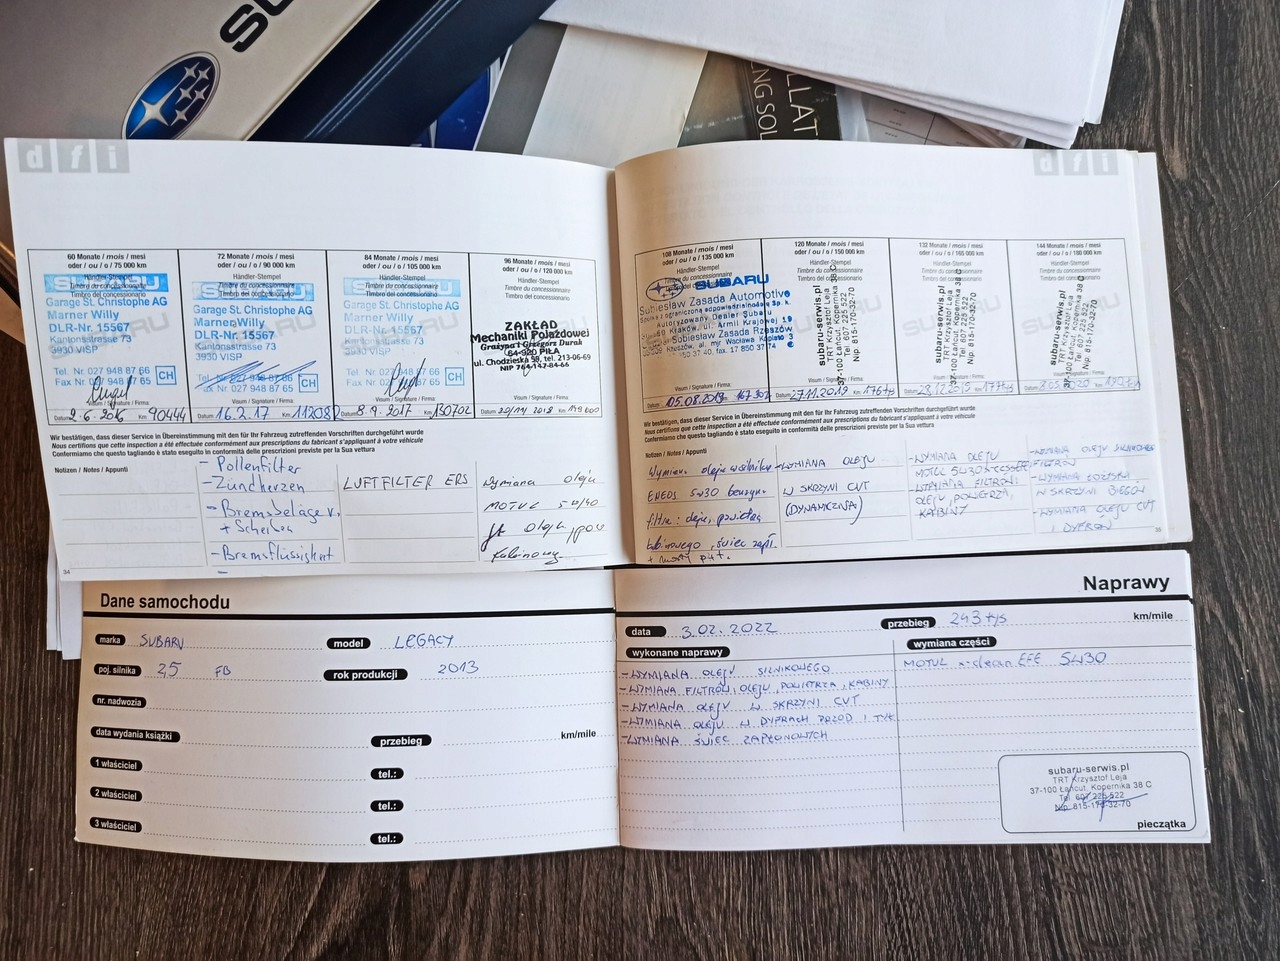 SU
LLAT
NG SOL
dfi
dfi
60 Monate / mois / mesi
oder / ou / o / 75 000 km
Händler-Stempel
Timbre du concessionnaire
Timbro del concessionario
SUBARU
Garage St. Christophe AG
Marner Willy
DLR-Nr. 15567
Kantonsstrasse 73
3930 VISP
Tel. 027 948 87 66
Fax Nr. 027 948 87 65
CH
Visum / Signature / Firma:
Datum 2.6.2016 Km 90444
72 Monate / mois / mesi
oder / ou / o / 90 000 km
Händler-Stempel
Timbre du concessionnaire
Timbro del concessionario
SUBARU
Garage St. Christophe AG
Marner Willy
DLR-Nr. 15567
Kantonsstrasse 73
3930 VISP
Tel. 027 948 87 66
Fax Nr. 027 948 87 65
CH
Visum / Signature / Firma:
Datum 16.2.17 Km 112082
84 Monate / mois / mesi
oder / ou / o / 105 000 km
Händler-Stempel
Timbre du concessionnaire
Timbro del concessionario
SUBARU
Garage St. Christophe AG
Marner Willy
DLR-Nr. 15567
Kantonsstrasse 73
3930 VISP
Tel. 027 948 87 66
Fax Nr. 027 948 87 65
CH
Visum / Signature / Firma:
Datum 8.9.2017 Km 130702
96 Monate / mois / mesi
oder / ou / o / 120 000 km
Händler-Stempel
Timbre du concessionnaire
Timbro del concessionario
ZAKŁAD
Mechaniki Pojazdowej
Grażyna i Grzegorz Durak
64-920 PIŁA
ul. Chodzieska 98, tel. 213-06-69
NIP 764-147-84-66
Visum / Signature / Firma:
Datum
Km
Wir bestätigen, dass dieser Service in Übereinstimmung mit den für Ihr Fahrzeug zutreffenden Vorschriften durchgeführt wurde
Nous certifions que cette inspection a été effectuée conformément aux prescriptions du fabricant s'appliquant à votre véhicule
Confermiamo che questo tagliando è stato eseguito in conformità delle prescrizioni previste per la Sua vettura
Notizen / Notes / Appunti
- Pollenfilter
- Zündkerzen
- Bremsbeläge v.
+ Scheiben
- Bremsflüssigkeit
LUFTFILTER ERS
Wymiana oleju
MOTUL 5W/40
oleju, pow
kabinowy.
34
108 Monate / mois / mesi
oder / ou / o / 135 000 km
Händler-Stempel
Timbre du concessionnaire
SUBARU
Sobiesław Zasada Automotive
Spółka z ograniczoną odpowiedzialnością Sp. k.
Autoryzowany Dealer Subaru
Kraków, ul. Armii Krajowej 19
Sobiesław Zasada Rzeszów
Rzeszów, al. mjr Wacława Kopisto 3
Visum / Signature / Firma:
Datum 05.08.2019 167 302
120 Monate / mois / mesi
oder / ou / o / 150 000 km
Händler-Stempel
Timbre du concessionnaire
Timbro del concessionario
subaru-serwis.pl
TRT Krzysztof Leja
37-100 Łańcut, Kopernika 38 C
Tel. 607 225 522
Nip. 815-170-32-70
Visum / Signature / Firma:
Datum 27.11.2019 Km 176 tys
132 Monate / mois / mesi
oder / ou / o / 165 000 km
Händler-Stempel
Timbre du concessionnaire
Timbro del concessionario
subaru-serwis.pl
TRT Krzysztof Leja
37-100 Łańcut, Kopernika 38 C
Tel. 607 225 522
Nip. 815-170-32-70
Visum / Signature / Firma:
Datum 28.12.2019 Km 177 tys
144 Monate / mois / mesi
oder / ou / o / 180 000 km
Händler-Stempel
Timbre du concessionnaire
Timbro del concessionario
subaru-serwis.pl
TRT Krzysztof Leja
37-100 Łańcut, Kopernika 38 C
Tel. 607 225 522
Nip. 815-170-32-70
Visum / Signature / Firma:
Datum
Km
Wir bestätigen, dass dieser Service in Übereinstimmung mit den für Ihr Fahrzeug zutreffenden Vorschriften durchgeführt wurde
Nous certifions que cette inspection a été effectuée conformément aux prescriptions du fabricant s'appliquant à votre véhicule
Confermiamo che questo tagliando è stato eseguito in conformità delle prescrizioni previste per la Sua vettura
Notizen / Notes / Appunti
Wymiana oleju silnika
ENEOS 5W30
filtry: oleju, powietrza
kabinowego, świec zapł.
- WYMIANA OLEJU
W SKRZYNI CVT
(DYNAMICZNA)
- WYMIANA OLEJU
MOTUL 5W30
- WYMIANA FILTRÓW:
OLEJU, POWIETRZA,
KABINY
- WYMIANA OLEJU SILNIKOWEGO
FILTRÓW
- WYMIANA ŁOŻYSK
W SKRZYNI BIEGÓW
- WYMIANA OLEJU CVT
I DYFRÓW
35
Dane samochodu
marka SUBARU
model LEGACY
poj. silnika 2,5 FB
rok produkcji 2013
nr. nadwozia
data wydania książki
przebieg
km/mile
1 właściciel
tel.:
2 właściciel
tel.:
3 właściciel
tel.:
Naprawy
data 3.02.2022
przebieg 243 tys
km/mile
wykonane naprawy
wymiana części
- WYMIANA OLEJU SILNIKOWEGO
- WYMIANA FILTRÓW: OLEJU, POWIETRZA, KABINY
- WYMIANA OLEJU W SKRZYNI CVT
- WYMIANA OLEJU W DYFRACH PRZÓD I TYŁ
- WYMIANA ŚWIEC ZAPŁONOWYCH
MOTUL x-clean EFE 5W30
subaru-serwis.pl
TRT Krzysztof Leja
37-100 Łańcut, Kopernika 38 C
Tel. 607 225 522
Nip. 815-170-32-70
pieczątka